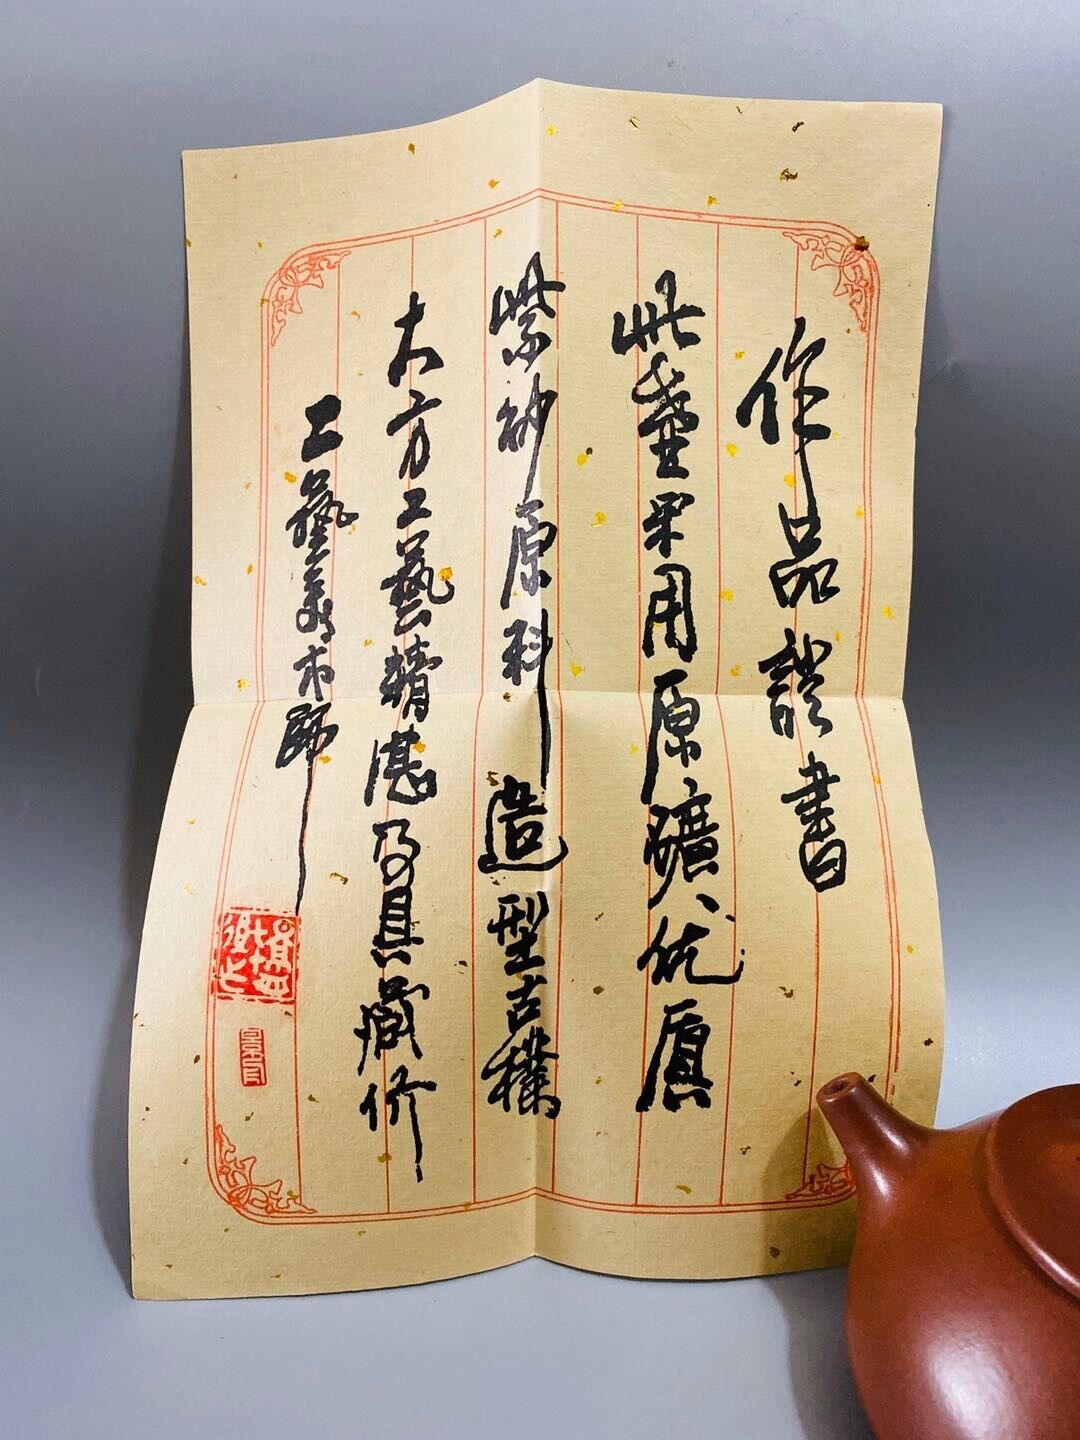 作品證書
此壷采用原礦优质
紫砂原料造型古樸
大方工藝精湛及具藏价
工藝美术師